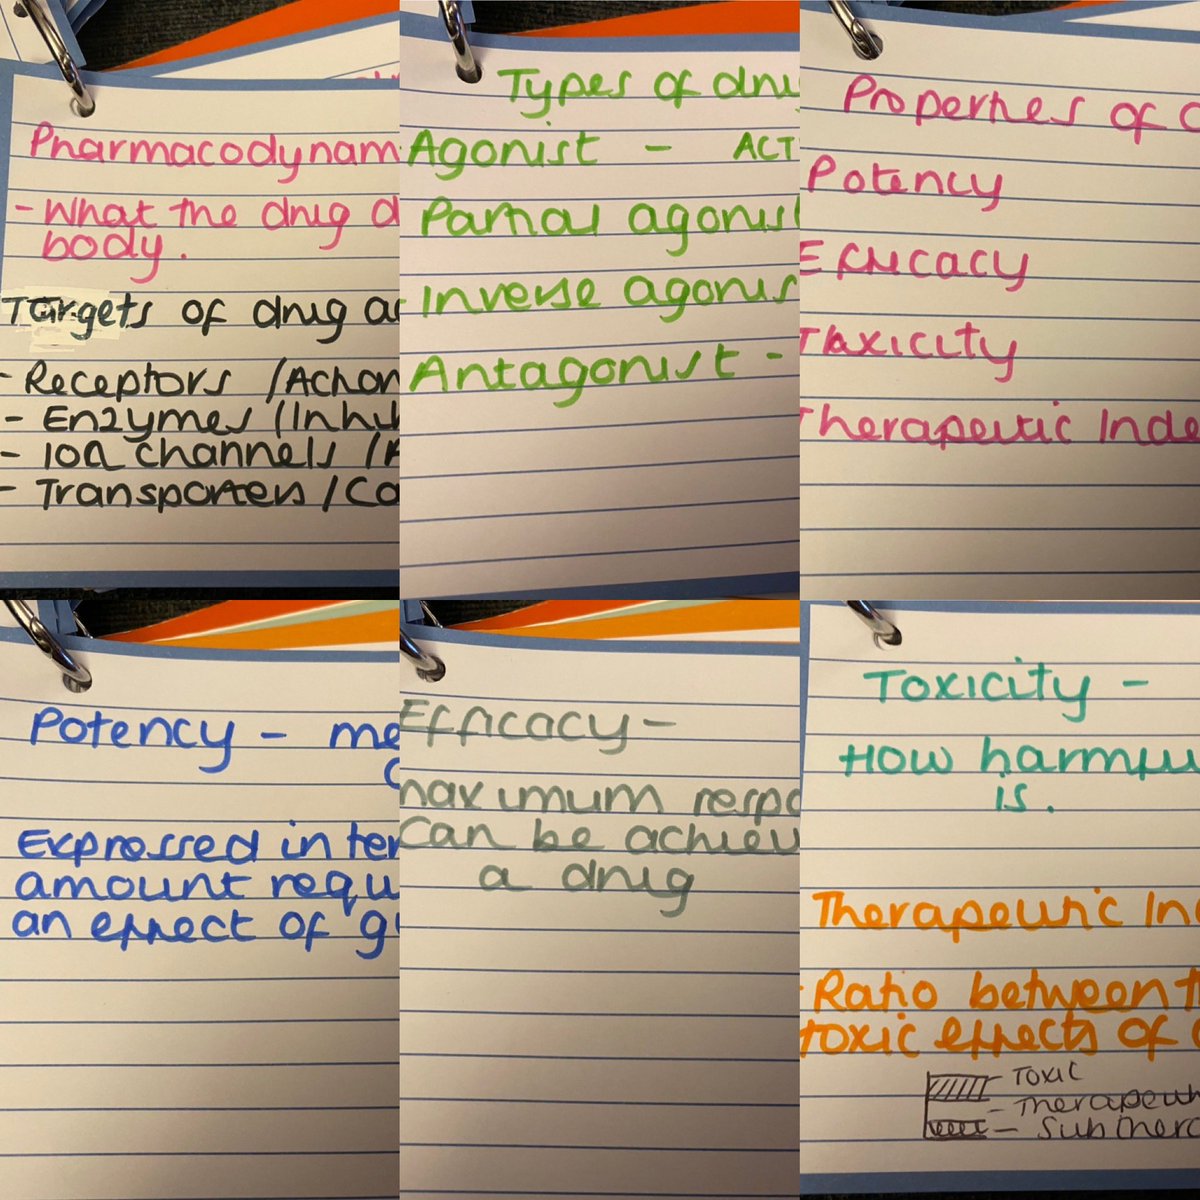 Pharmacodynam
- What the drug d
body.
Targets of drug ac
- Receptors /Action
- Enzymes (Inhi
- Ion channels /
- Transporters /Co
Types of dru
Agonist - ACT
Partial agonist
Inverse agonis
Antagonist -
Properties of
Potency
Efficacy
Toxicity
Therapeutic Inde
Potency - me
Expressed in ter
amount requ
an effect of g
Efficacy -
maximum respo
can be achiev
a drug
Toxicity -
How harmfu
is.
Therapeutic In
- Ratio between t
toxic effects of
Toxic
- Therapeuti
- Subthera